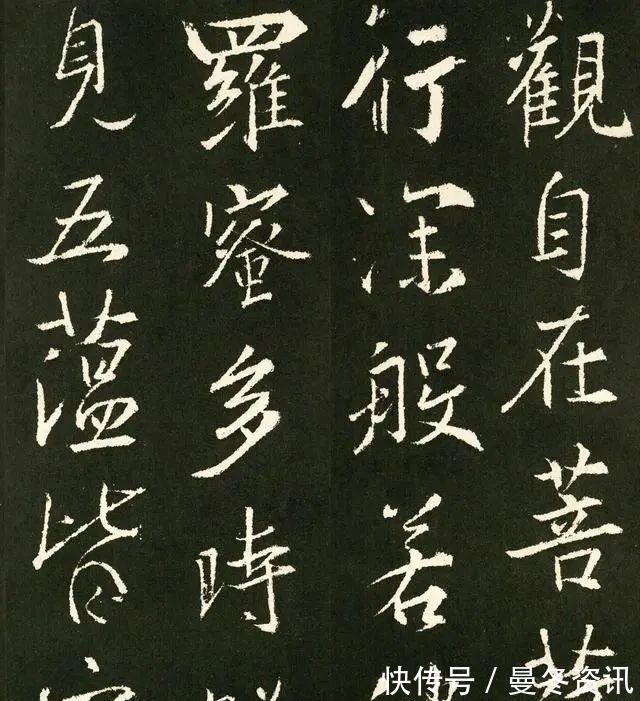 觀自在菩
行深般若
羅蜜多時
見五蘊皆
快传号／曼冬资讯